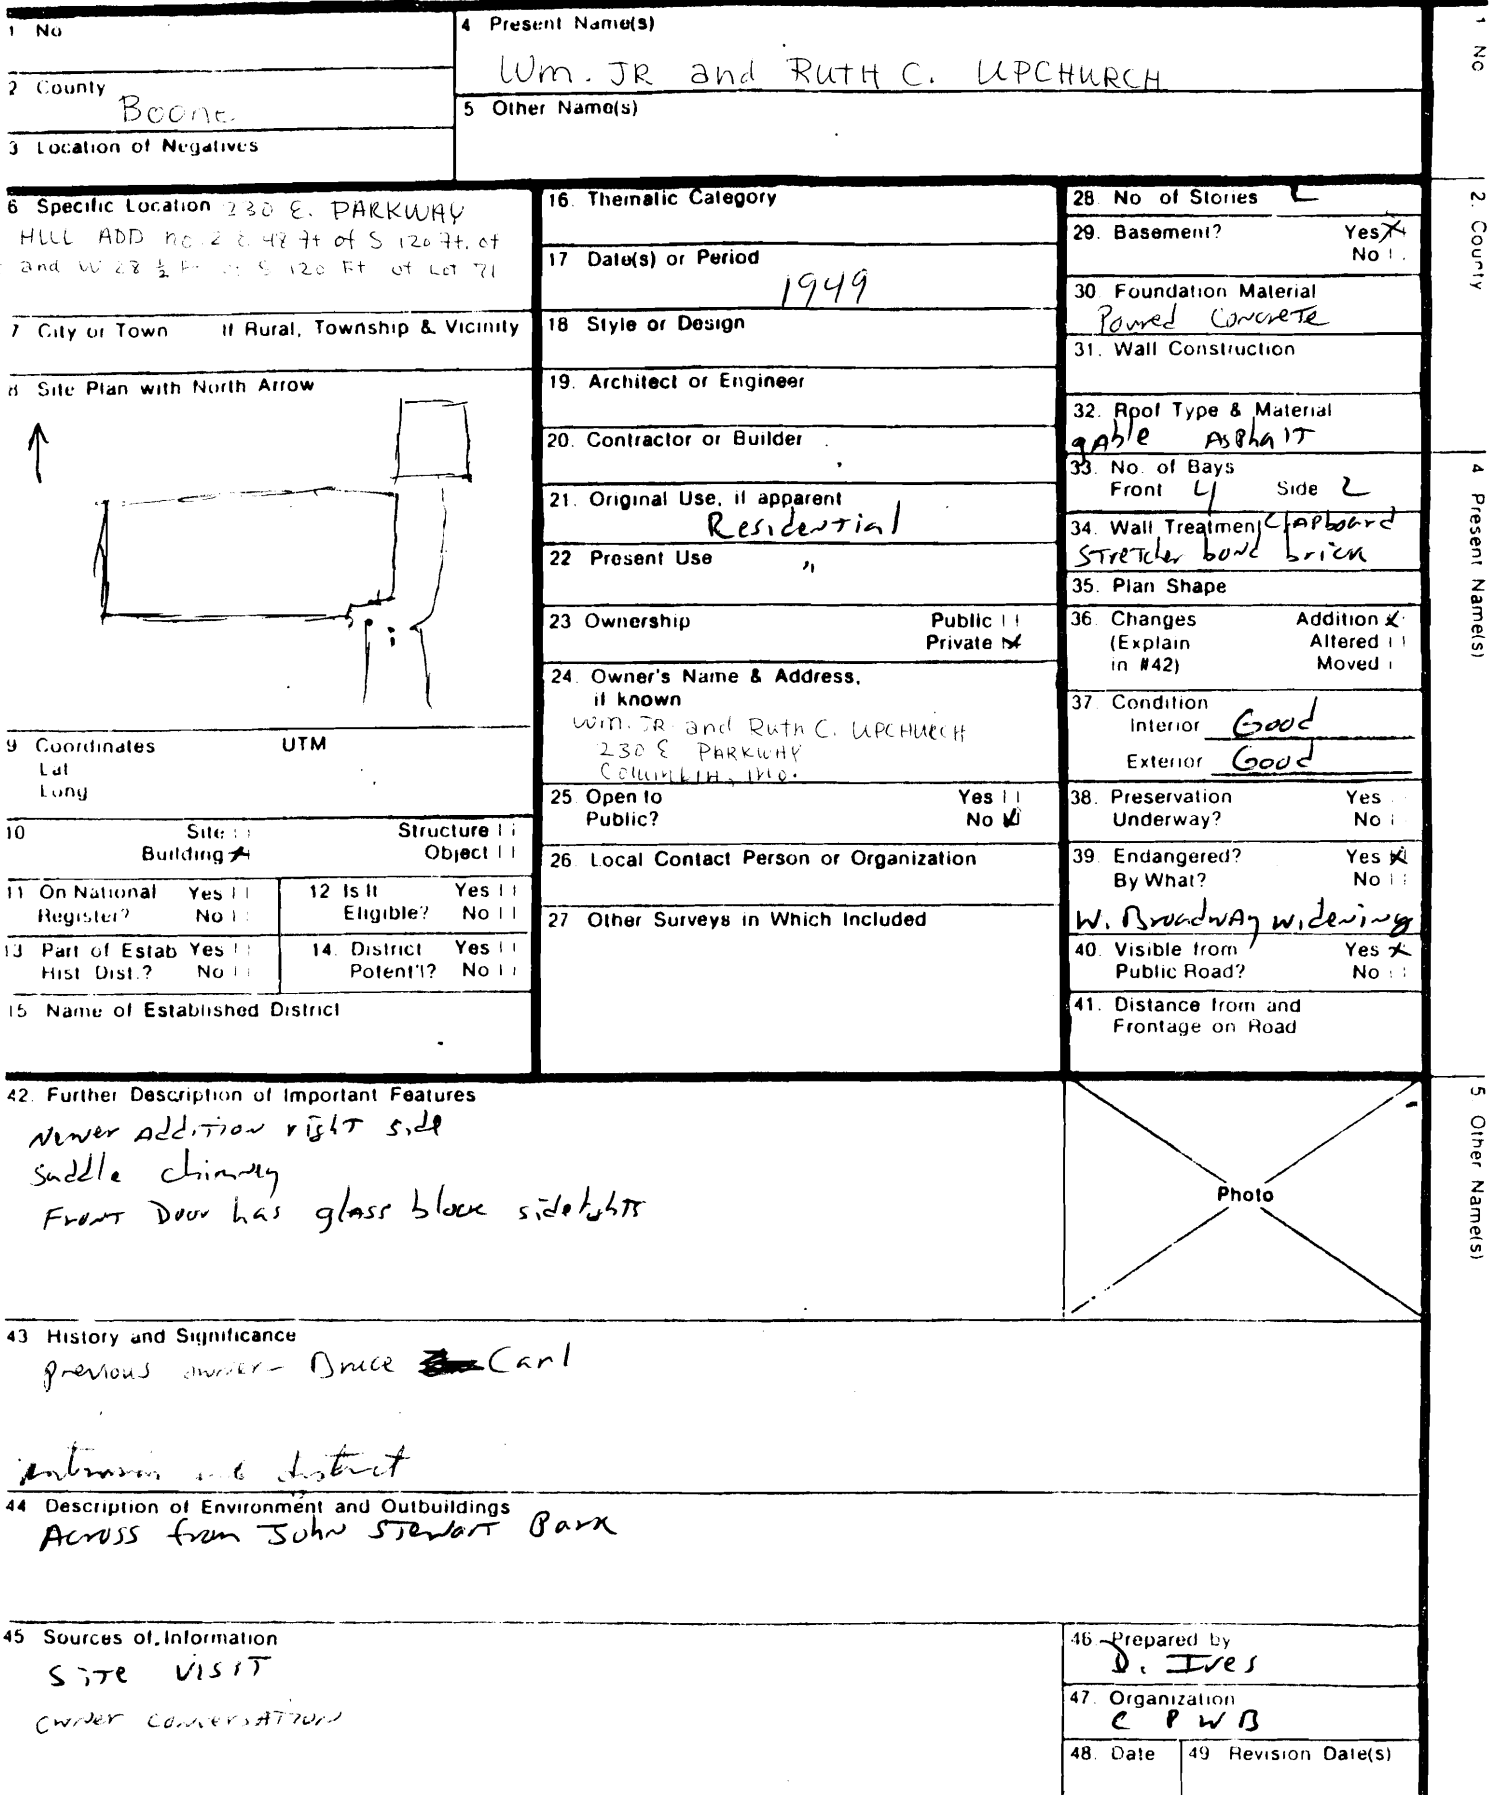 1 No
4 Present Name(s)
Wm. JR and RUTH C. UPCHURCH
2 County
Boone
5 Other Name(s)
3 Location of Negatives
6 Specific Location 230 E. PARKWAY
HULL ADD no. 2 E. 48 Ft of S 120 Ft. of
and W 28 ½ Ft S 120 Ft of Lot 71
7 City or Town If Rural, Township & Vicinity
8 Site Plan with North Arrow
9 Coordinates UTM
Lat
Long
10 Site Structure
Building Object
11 On National Register? Yes No
12 Is It Eligible? Yes No
13 Part of Estab Hist Dist.? Yes No
14. District Potent'l? Yes No
15 Name of Established District
16. Thematic Category
17 Date(s) or Period
1949
18 Style or Design
19. Architect or Engineer
20. Contractor or Builder
21. Original Use, if apparent
Residential
22 Present Use
"
23 Ownership Public
Private
24. Owner's Name & Address,
if known
Wm. JR. and Ruth C. UPCHURCH
230 E PARKWAY
Columbia, Mo.
25. Open to Yes
Public? No
26. Local Contact Person or Organization
27 Other Surveys in Which Included
28. No of Stories
29. Basement? Yes
No
30. Foundation Material
Poured Concrete
31. Wall Construction
32. Roof Type & Material
gable Asphalt
33. No. of Bays
Front 4 Side 2
34. Wall Treatment Clapboard
Stretcher bond brick
35. Plan Shape
36. Changes Addition
(Explain Altered
in #42) Moved
37. Condition
Interior Good
Exterior Good
38. Preservation Yes
Underway? No
39. Endangered? Yes
By What? No
W. Broadway widening
40. Visible from Yes
Public Road? No
41. Distance from and
Frontage on Road
42. Further Description of Important Features
Newer Addition right side
saddle chimney
Front Door has glass block sidelights
Photo
43 History and Significance
previous owner - Bruce Carl
district
44 Description of Environment and Outbuildings
Across from John Stewart Park
45 Sources of Information
Site Visit
owner conversation
46. Prepared by
D. Ives
47. Organization
C P W B
48. Date
49 Revision Date(s)
1 No
2. County
4 Present Name(s)
5 Other Name(s)